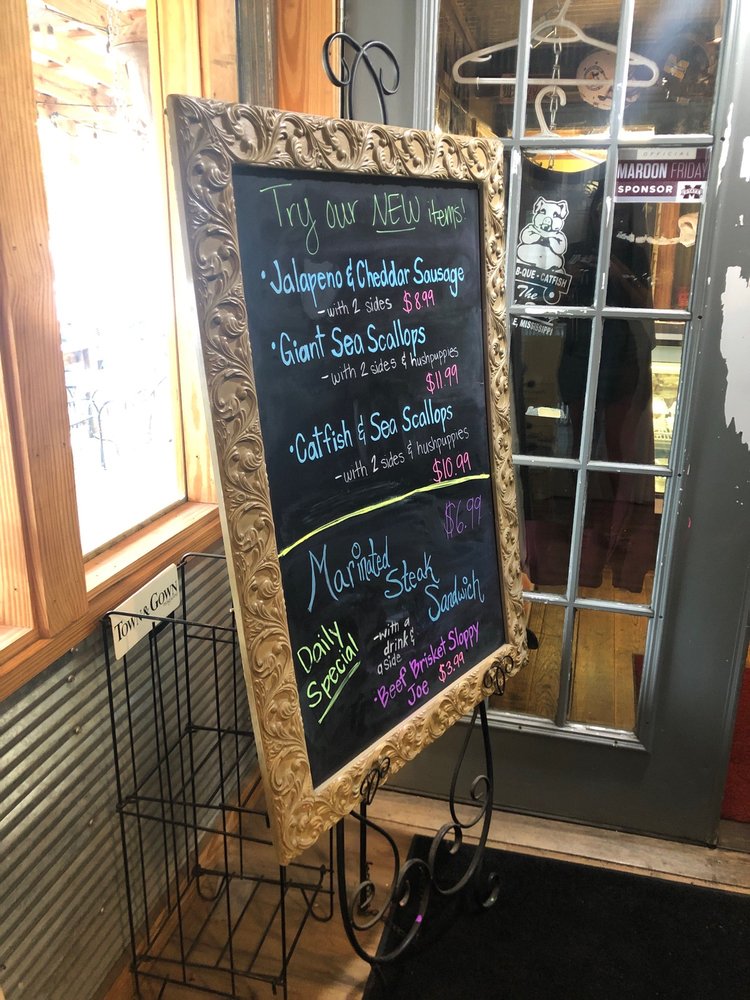 Try our NEW items!
• Jalapeno & Cheddar Sausage
- with 2 sides $8.99
• Giant Sea Scallops
- with 2 sides & hushpuppies
$11.99
• Catfish & Sea Scallops
- with 2 sides & hushpuppies
$10.99
$6.99
Marinated Steak Sandwich
Daily
Special
- with a
drink &
a side
• Beef Brisket Sloppy
Joe $3.99
TOWN & GOWN
OFFICIAL
MAROON FRIDAY
SPONSOR
B-QUE - CATFISH
The
E, MISSISSIPPI